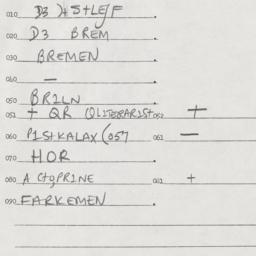 010 D3
020 D3 BREM
030 BREMEN
040 —
050 BR1LN
051 + QR (QLITERARIST 052 +
060 P1STKALAX (057 061 —
070 HOR
080 A 081 +
090 FARKEMEN